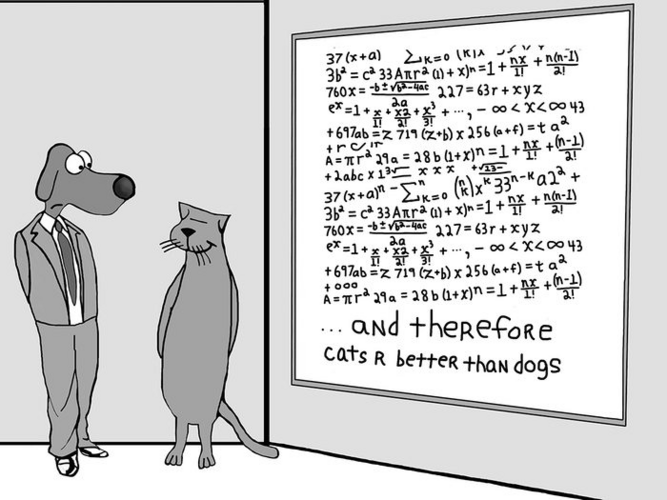 37 (x+a) Σ K=0
3b² = c² 33 Aπr² (1) + x)ⁿ = 1 + nx/1! + n(n-1)/2!
760x = -b ± √b²-4ac / 2a 227 = 63r + xyz
eˣ = 1 + x/1! + x2/2! + x³/3! + ..., - ∞ < x < ∞ 43
+ 697ab = z 719 (z+b) x 256 (a+f) = t a²
+ r
A = πr² 29a = 28b (1+x)ⁿ = 1 + nx/1! + (n-1)/2!
+ 2abc x x x x
37 (x+a)ⁿ - Σⁿ K=0 (n k) xᵏ 33ⁿ⁻ᵏ a2² +
3b² = c² 33 Aπr² (1) + x)ⁿ = 1 + nx/1! + n(n-1)/2!
760x = -b ± √b²-4ac / 2a 227 = 63r + xyz
eˣ = 1 + x/1! + x2/2! + x³/3! + ..., - ∞ < x < ∞ 43
+ 697ab = z 719 (z+b) x 256 (a+f) = t a²
+ 000
A = πr² 29a = 28b (1+x)ⁿ = 1 + nx/1! + (n-1)/2!
... and therefore
cats R better than dogs